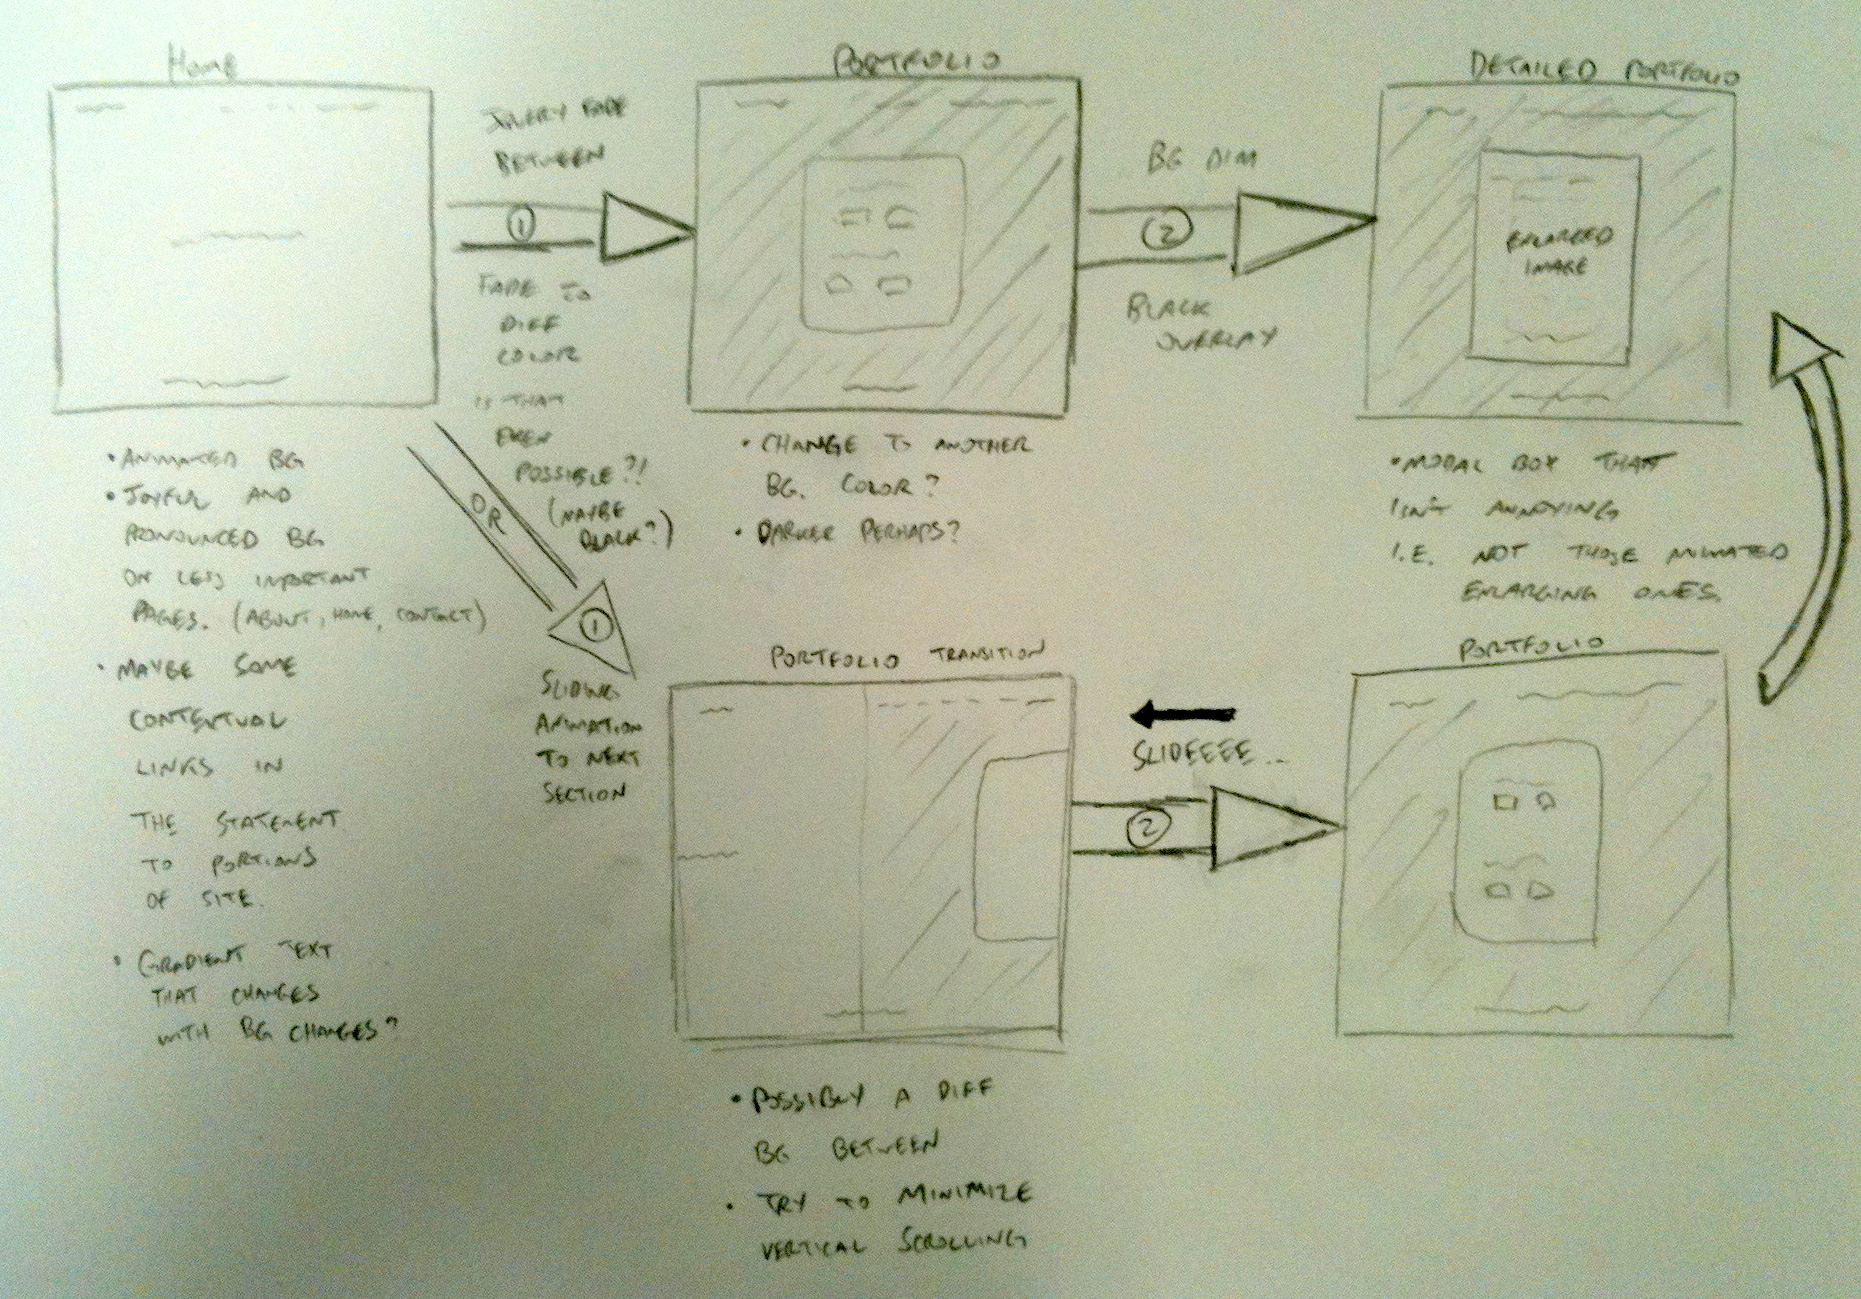 HOME
JQUERY FADE
BETWEEN
1
FADE TO
DIFF
COLOR
IS THAT
EVEN
POSSIBLE?!
(MAYBE
BLACK?)
PORTFOLIO
BG DIM
2
BLACK
OVERLAY
DETAILED PORTFOLIO
ENLARGED
IMAGE
• ANIMATED BG
• JOYFUL AND
PRONOUNCED BG
ON LESS IMPORTANT
PAGES. (ABOUT, HOME, CONTACT)
• MAYBE SOME
CONTEXTUAL
LINKS IN
THE STATEMENT
TO PORTIONS
OF SITE.
• GRADIENT TEXT
THAT CHANGES
WITH BG CHANGES?
OR
1
SLIDING
ANIMATION
TO NEXT
SECTION
• CHANGE TO ANOTHER
BG. COLOR?
• DARKER PERHAPS?
• MODAL BOX THAT
ISN'T ANNOYING
I.E. NOT THOSE ANIMATED
ENLARGING ONES.
PORTFOLIO TRANSITION
SLIDEEEE...
2
PORTFOLIO
• POSSIBLY A DIFF
BG BETWEEN
• TRY TO MINIMIZE
VERTICAL SCROLLING